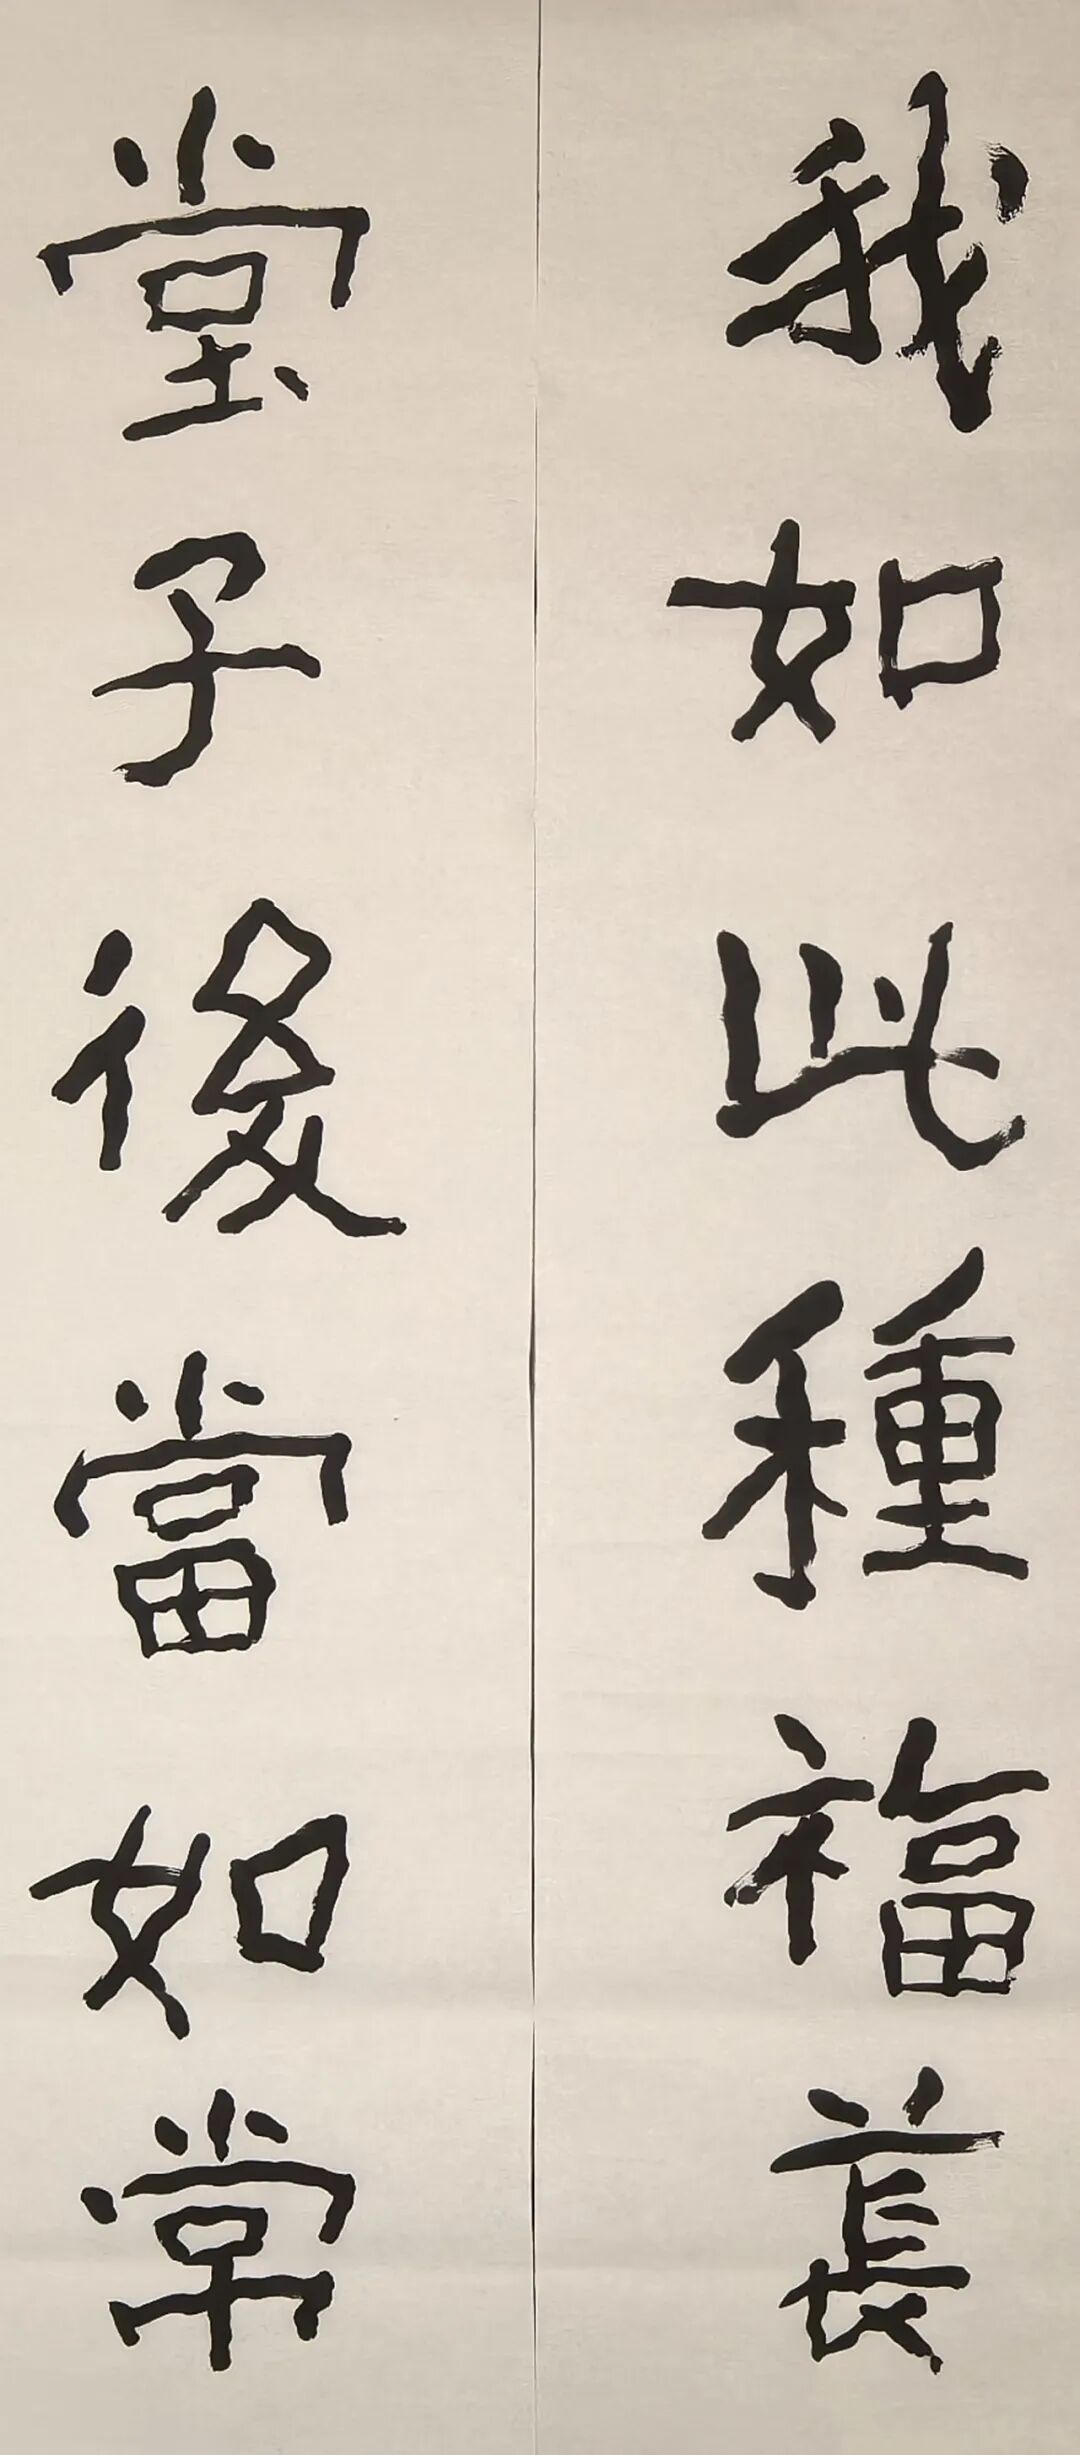 我如此種福萇
堂子後當如常